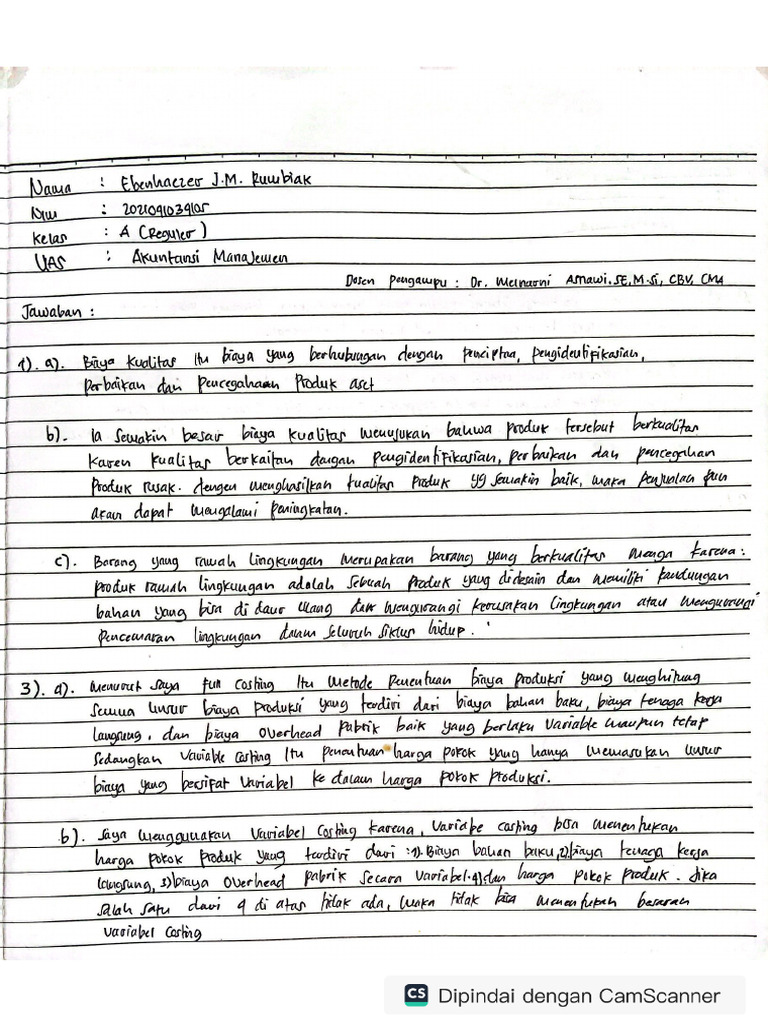 Nama : Ebenhaezer J.M. Rumbiak
Nim : 2021091039105
Kelas : A (Reguler)
UAS : Akuntansi Manajemen
Dosen pengampu : Dr. Meinarni Asnawi.SE,M.Si, CBV, CMA
Jawaban :
1). a). Biaya Kualitas Itu biaya yang berhubungan dengan penciptaa, pengidentifikasian,
perbaikan dan pencegahaan Produk aset
b). Ia semakin besar biaya kualitas menunjukan bahwa produk tersebut berkualitas
karen kualitas berkaitan dangan pengidentifikasian, perbaikan dan pencegahan
Produk rusak. dengen menghasilkan kualitas Produk yg semakin baik, maka penjualan pun
akan dapat mengalami peningkatan.
c). Barang yang ramah lingkungan merupakan barang yang berkualitas karena :
produk ramah lingkungan adalah sebuah produk yang didesain dan memiliki kandungan
bahan yang bisa di daur ulang dan mengurangi kerusakan lingkungan atau mengurangi
pencemaran lingkungan dalam seluruh siklus hidup.
3). a). menurut saya full costing Itu metode penentuan biaya produksi yang menghitung
semua unsur biaya produksi yang terdiri dari biaya bahan baku, biaya tenaga kerja
langsung, dan biaya overhead pabrik baik yang berlaku variable maupun tetap
sedangkan variable costing Itu penentuan harga pokok yang hanya memasukan unsur
biaya yang bersifat variabel ke dalam harga pokok produksi.
b). Saya menggunakan variabel costing karena, variabe casting bisa menentukan
harga pokok produk yang terdiri dari :1). Biaya bahan baku,2)biaya tenaga kerja
langsung, 3)biaya overhead pabrik secara variabel.4)dan harga pokok produk. Jika
salah satu dari 4 di atas tidak ada, maka tidak bisa menentukan besaran
variabel casting
CS Dipindai dengan CamScanner